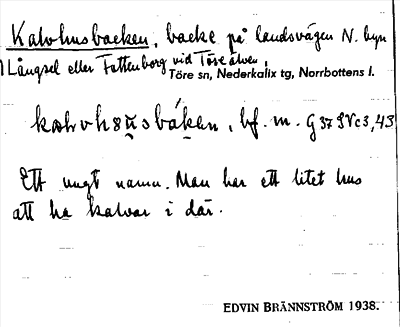 Kalvhusbacken, backe på landsvägen N. byn
Långsel eller Fattenborg vid Töre älven,
Töre sn, Nederkalix tg, Norrbottens l.
bf. m. G 37 SVc3,43
Ett ungt namn. Man har ett litet hus
att ha kalvar i där.
EDVIN BRÄNNSTRÖM 1938.